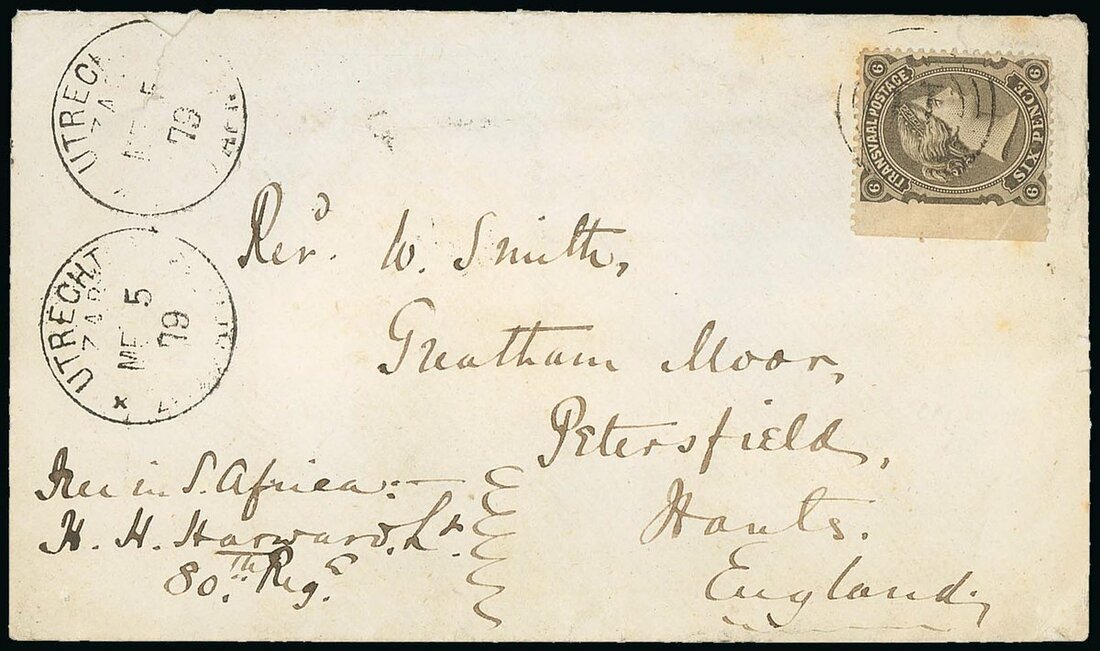 UTRECHT
ZAR
5
79
UTRECHT
ZAR
5
79
TRANSVAAL POSTAGE
SIX PENCE
6 6 6 6
Revd. W. Smith,
Greatham Moor,
Petersfield,
Hants.
England;
in S. Africa:—
H. H. Harward, Lt.
80th. Regt.